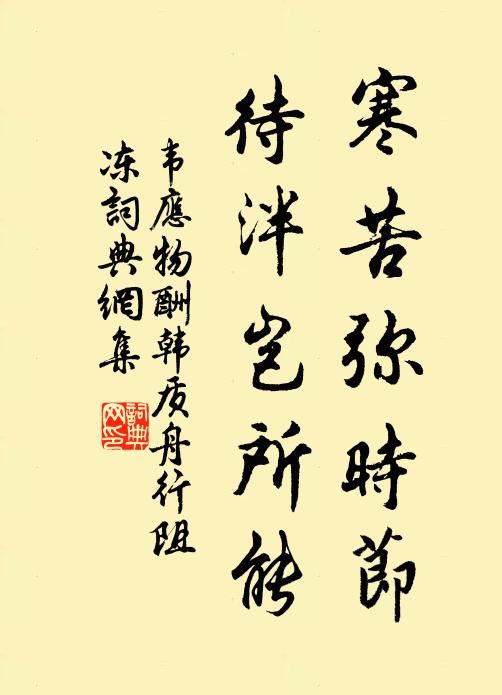 寒苦弥時節
待泮岂所能
韦應物酬韩质舟行阻
冻詞典網集
詞典
网印